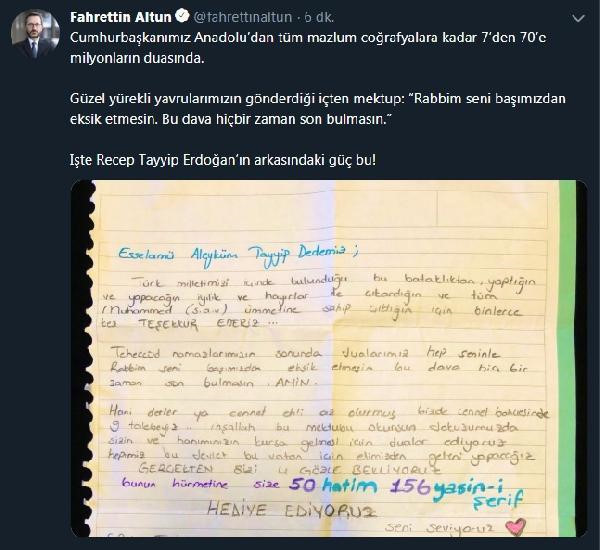 Fahrettin Altun @fahrettinaltun · 6 dk.
Cumhurbaşkanımız Anadolu'dan tüm mazlum coğrafyalara kadar 7'den 70'e
milyonların duasında.
Güzel yürekli yavrularımızın gönderdiği içten mektup: “Rabbim seni başımızdan
eksik etmesin. Bu dava hiçbir zaman son bulmasın.”
İşte Recep Tayyip Erdoğan'ın arkasındaki güç bu!
Esselamü Aleyküm Tayyip Dedemiz ;
Türk milletimizi içinde bulunduğu bu bataklıktan, yaptığın
ve yapacağın iyilik ve hayırlar ile çıkardığın ve tüm
Muhammed (s.a.v) ümmetine sahip çıktığın için binlerce
kez TEŞEKKÜR EDERİZ ...
Teheccüd namazlarımızın sonunda dualarımız hep seninle
Rabbim seni başımızdan eksik etmesin bu dava hiç bir
zaman son bulmasın AMİN.
Hani derler ya cennet ehli az olurmuş bizde cennet bahçesinde
9 talebeyiz .. inşallah bu mektubu okursun
sizin ve hanımınızın kursa gelmesi için dualar ediyoruz
hepimiz bu devlet bu vatan için elimizden geleni yapacağız
GERÇEKTEN sizi GÖZLE BEKLİYORUZ
bunun hürmetine size 50 hatim 156 yasin-i
şerif
HEDİYE EDİYORUZ
seni seviyoruz